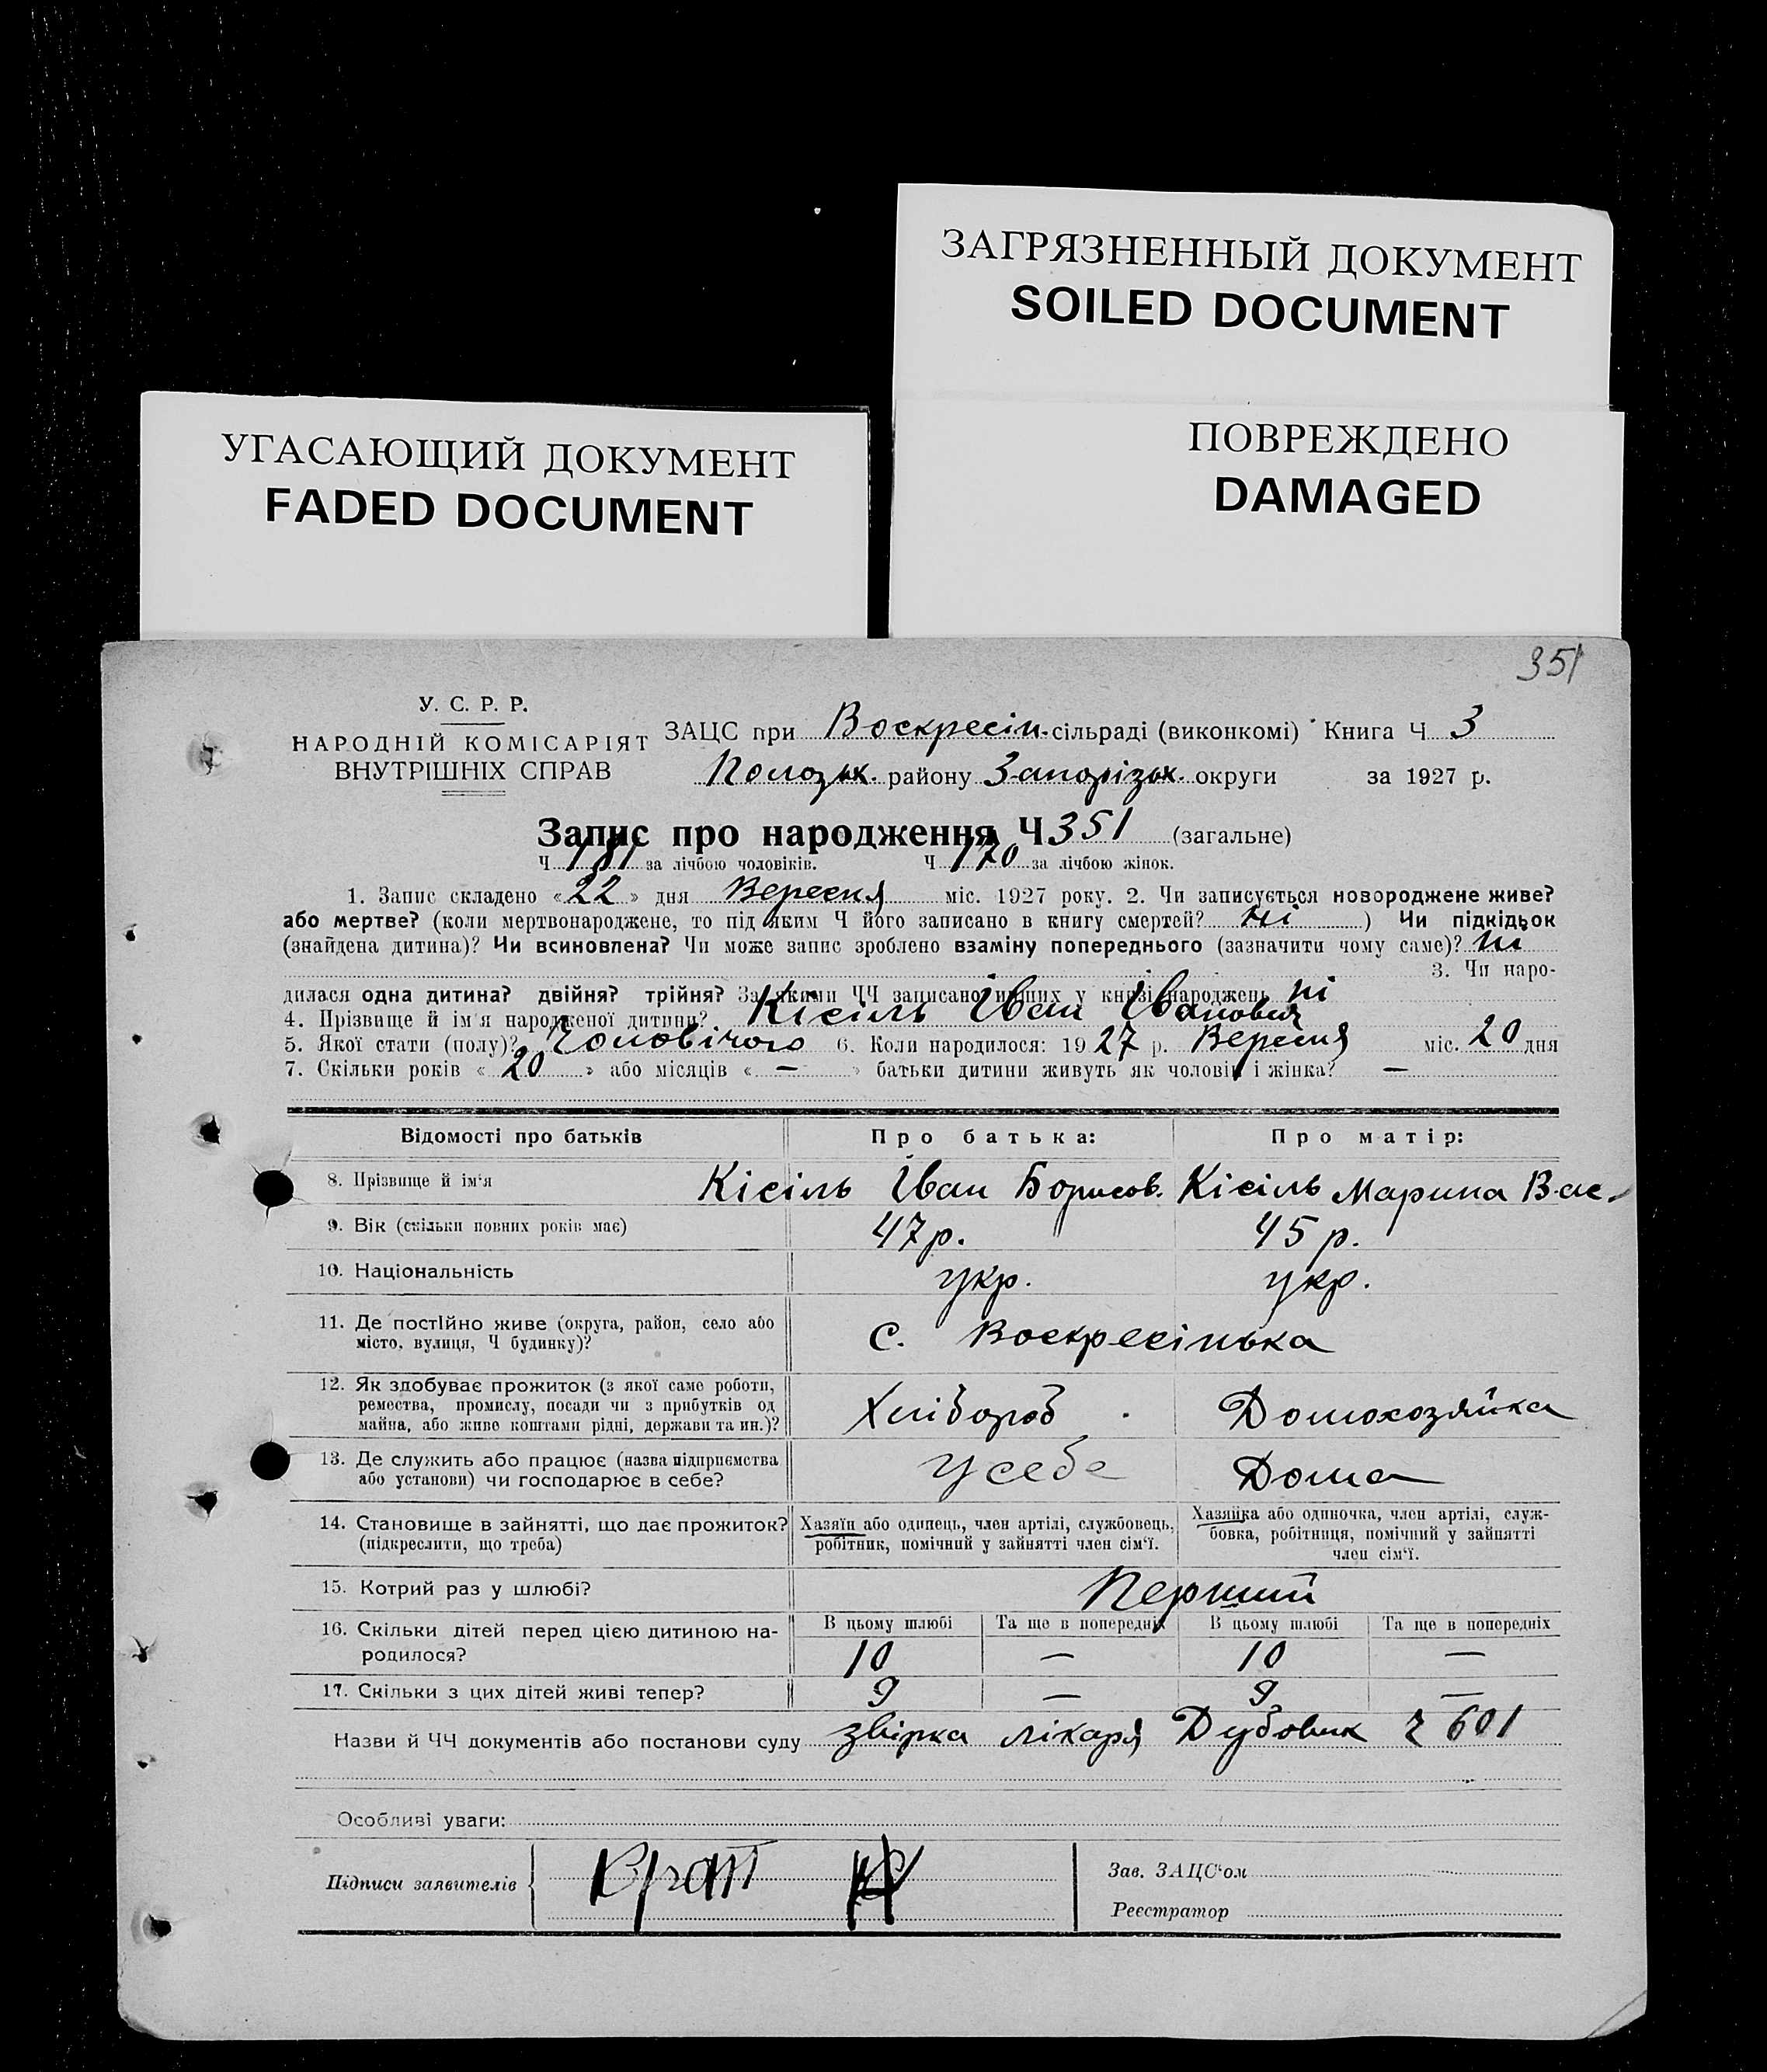 ЗАГРЯЗНЕННЫЙ ДОКУМЕНТ
SOILED DOCUMENT
УГАСАЮЩИЙ ДОКУМЕНТ
FADED DOCUMENT
ПОВРЕЖДЕНО
DAMAGED
351
У. С. Р. Р.
НАРОДНІЙ КОМІСАРІЯТ
ВНУТРІШНІХ СПРАВ
ЗАЦС при Воскресін. сільраді (виконкомі) Книга Ч 3
Пологзьк. району Запорізьк. округи за 1927 р.
Запис про народження Ч 351 (загальне)
Ч 181 за лічбою чоловіків. Ч 170 за лічбою жінок.
1. Запис складено «22» дня Вересня міс. 1927 року. 2. Чи записується новороджене живе?
або мертве? (коли мертвонароджене, то під яким Ч його записано в книгу смертей? ні ) Чи підкідьок
(знайдена дитина)? Чи всиновлена? Чи може запис зроблено взаміну попереднього (зазначити чому саме)? ні
3. Чи наро-
дилася одна дитина? двійня? трійня? За якими ЧЧ записано инших у книзі народжень ні
4. Прізвище й ім'я народженої дитини? Кісіль Іван Іванович
5. Якої стати (полу)? Чоловічого 6. Коли народилося: 1927 р. Вересня міс. 20 дня
7. Скільки років «20» або місяців « — » батьки дитини живуть як чоловік і жінка? —
Відомості про батьків Про батька: Про матір:
8. Прізвище й ім'я Кісіль Іван Борисов. Кісіль Марина Вас.
9. Вік (скільки повних років має) 47 р. 45 р.
10. Національність укр. укр.
11. Де постійно живе (округа, район, село або
місто, вулиця, Ч будинку)? с. Воскресінька
12. Як здобуває прожиток (з якої саме роботи,
ремества, промислу, посади чи з прибутків од
майна, або живе коштами рідні, держави та ин.)? Хлібороб. Домохозяйка
13. Де служить або працює (назва підприємства
або установи) чи господарює в себе? У себе Дома
14. Становище в зайнятті, що дає прожиток?
(підкреслити, що треба)
Хазяїн або одинець, член артілі, службовець,
робітник, помічний у зайнятті член сім'ї.
Хазяйка або одиночка, член артілі, служ-
бовка, робітниця, помічний у зайнятті
член сім'ї.
15. Котрий раз у шлюбі? Перший
В цьому шлюбі Та ще в попередніх В цьому шлюбі Та ще в попередніх
16. Скільки дітей перед цією дитиною на-
родилося? 10 — 10 —
17. Скільки з цих дітей живі тепер? 9 — 9 —
Назви й ЧЧ документів або постанови суду звірка лікаря Дубовик Ч 601
Особливі уваги:
Підписи заявителів
Зав. ЗАЦС'ом
Реєстратор